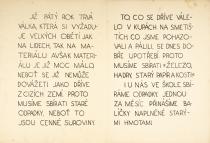 JIŽ PÁTÝ ROK TRVÁ
VÁLKA, KTERÁ SI VYŽADU-
JE VELKÝCH OBĚTÍ JAK
NA LIDECH, TAK NA MA-
TERIÁLU AVŠAK MATERI-
ÁLU JE JIŽ MOC MÁLO
NEBOŤ SE JIŽ NEMŮŽE
DOVÁŽETI JAKO DŘÍVE
Z CIZÍCH ZEMÍ. PROTO
MUSÍME SBÍRATI STARÉ
ODPADKY, NEBOŤ TO
JSOU CENNÉ SUROVINY.
TO, CO SE DŘÍVE VÁLE-
LO V KUPÁCH NA SMETIŠ-
TÍCH CO JSME POHAZOV-
ALI A PÁLILI, SE DNES DO-
BŘE UPOTŘEBÍ. PROTO
MUSÍME SBÍRATI ŽELEZO,
HADRY, STARÝ PAPÍR A KOSTI
I U NÁS VE ŠKOLE SBÍ-
RÁME ODPADKY. JEDNOU
ZA MĚSÍC PŘINÁŠÍME BA-
LÍČKY NAPLNĚNÉ STARÝ-
MI HMOTAMI.